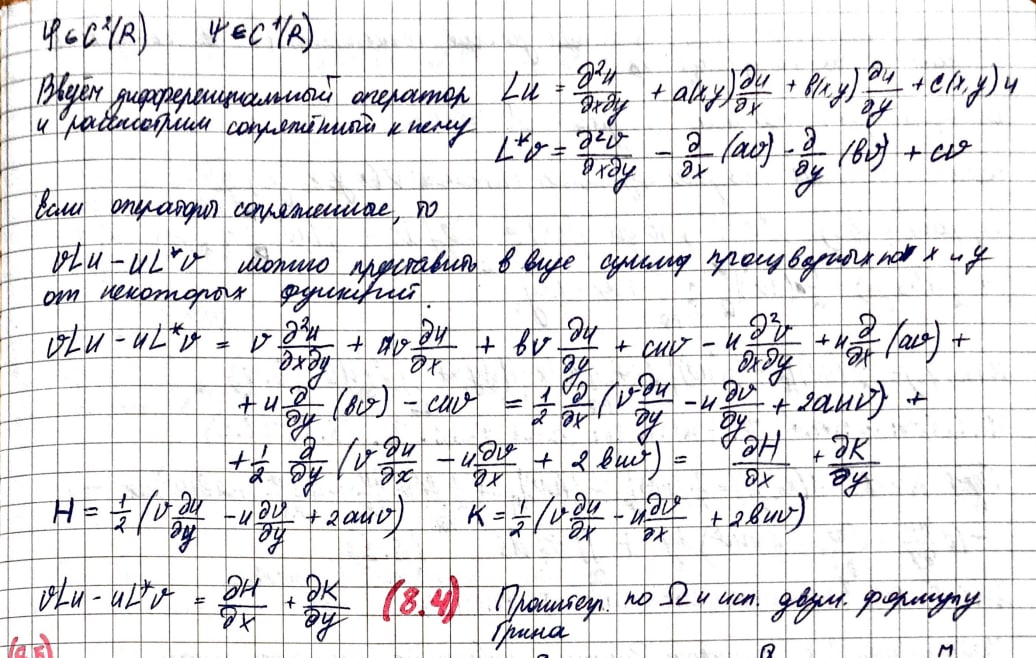 φ ∈ C²(R) ψ ∈ C¹(R)
Введём дифференциальный оператор Lu = ∂²u/∂x∂y + a(x,y) ∂u/∂x + b(x,y) ∂u/∂y + c(x,y) u
и рассмотрим сопряжённый к нему L*v = ∂²v/∂x∂y - ∂/∂x (av) - ∂/∂y (bv) + cv
Если операторы сопряженные, то
vLu - uL*v можно представить в виде суммы производных по x и y
от некоторых функций.
vLu - uL*v = v ∂²u/∂x∂y + av ∂u/∂x + bv ∂u/∂y + cuv - u ∂²v/∂x∂y + u ∂/∂x (av) +
+ u ∂/∂y (bv) - cuv = 1/2 ∂/∂x (v ∂u/∂y - u ∂v/∂y + 2auv) +
+ 1/2 ∂/∂y (v ∂u/∂x - u ∂v/∂x + 2buv) = ∂H/∂x + ∂K/∂y
H = 1/2 (v ∂u/∂y - u ∂v/∂y + 2auv) K = 1/2 (v ∂u/∂x - u ∂v/∂x + 2buv)
vLu - uL*v = ∂H/∂x + ∂K/∂y (8.4) Проинтегр. по Ω и исп. двум. формулу
Грина